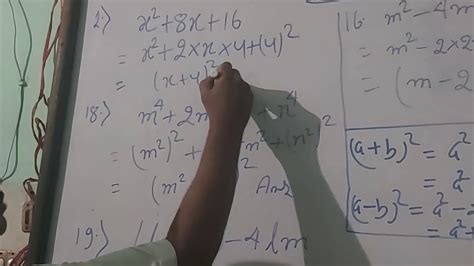 2:) x² + 8x + 16
= x² + 2 × x × 4 + (4)²
= (x+4)²
18:) m⁴ + 2m n⁴
= (m²)² + m² + (n²)²
= (m² ² Ans
19:) - 4lm
116: m² - 4m
= m² - 2×2
= (m - 2
(a+b)² = a²
= a²
(a-b)² = a² -
= a² +